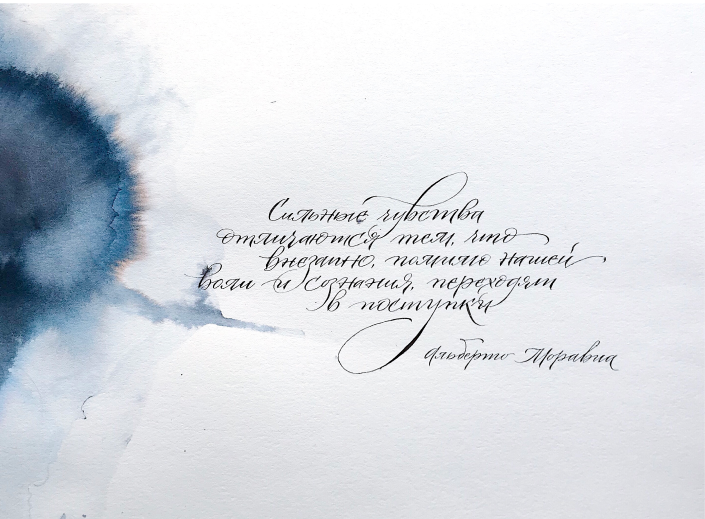 Сильные чувства
отличаются тем, что
внезапно, помимо нашей
воли и сознания, переходят
в поступки
Альберто Моравиа